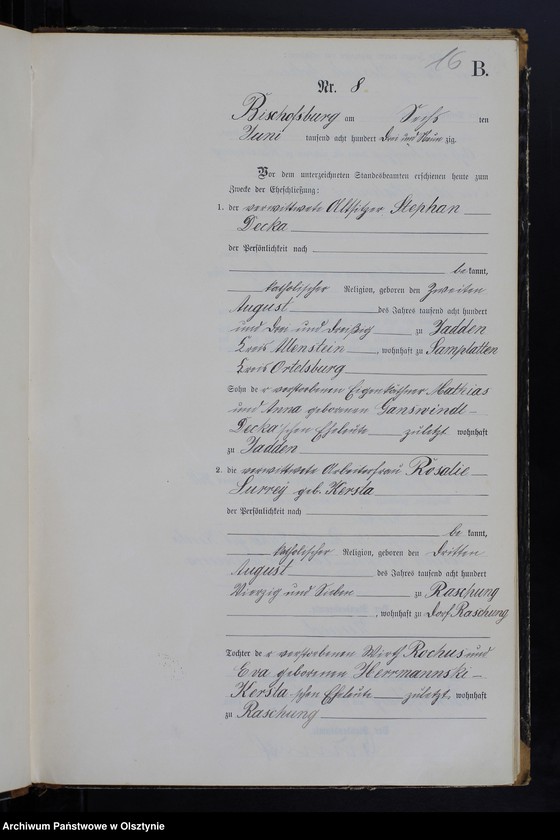 16 B.
Nr. 8
Bischofsburg am Sechs ten
Juni tausend acht hundert drei und Neun zig.
Vor dem unterzeichneten Standesbeamten erschienen heute zum
Zwecke der Eheschließung:
1. der verwittwete Altsitzer Stephan
Decka
der Persönlichkeit nach
be kannt,
katholischer Religion, geboren den Zweiten
August des Jahres tausend acht hundert
und drei und dreißig zu Jadden
Kreis Allenstein, wohnhaft zu Samplatten
Kreis Ortelsburg
Sohn der verstorbenen Eigenkäthner Mathias
und Anna geborenen Ganswindt -
Decka'schen Eheleute zuletzt wohnhaft
zu Jadden
2. die verwittwete Arbeiterfrau Rosalie
Surrey geb. Kersta
der Persönlichkeit nach
be kannt,
katholischer Religion, geboren den dritten
August des Jahres tausend acht hundert
Vierzig und Sieben zu Raschung
, wohnhaft zu Dorf Raschung
Tochter der verstorbenen Wirth Rochus und
Eva geborenen Herrmannski -
Kersta-schen Eheleute zuletzt wohnhaft
zu Raschung
Archiwum Państwowe w Olsztynie